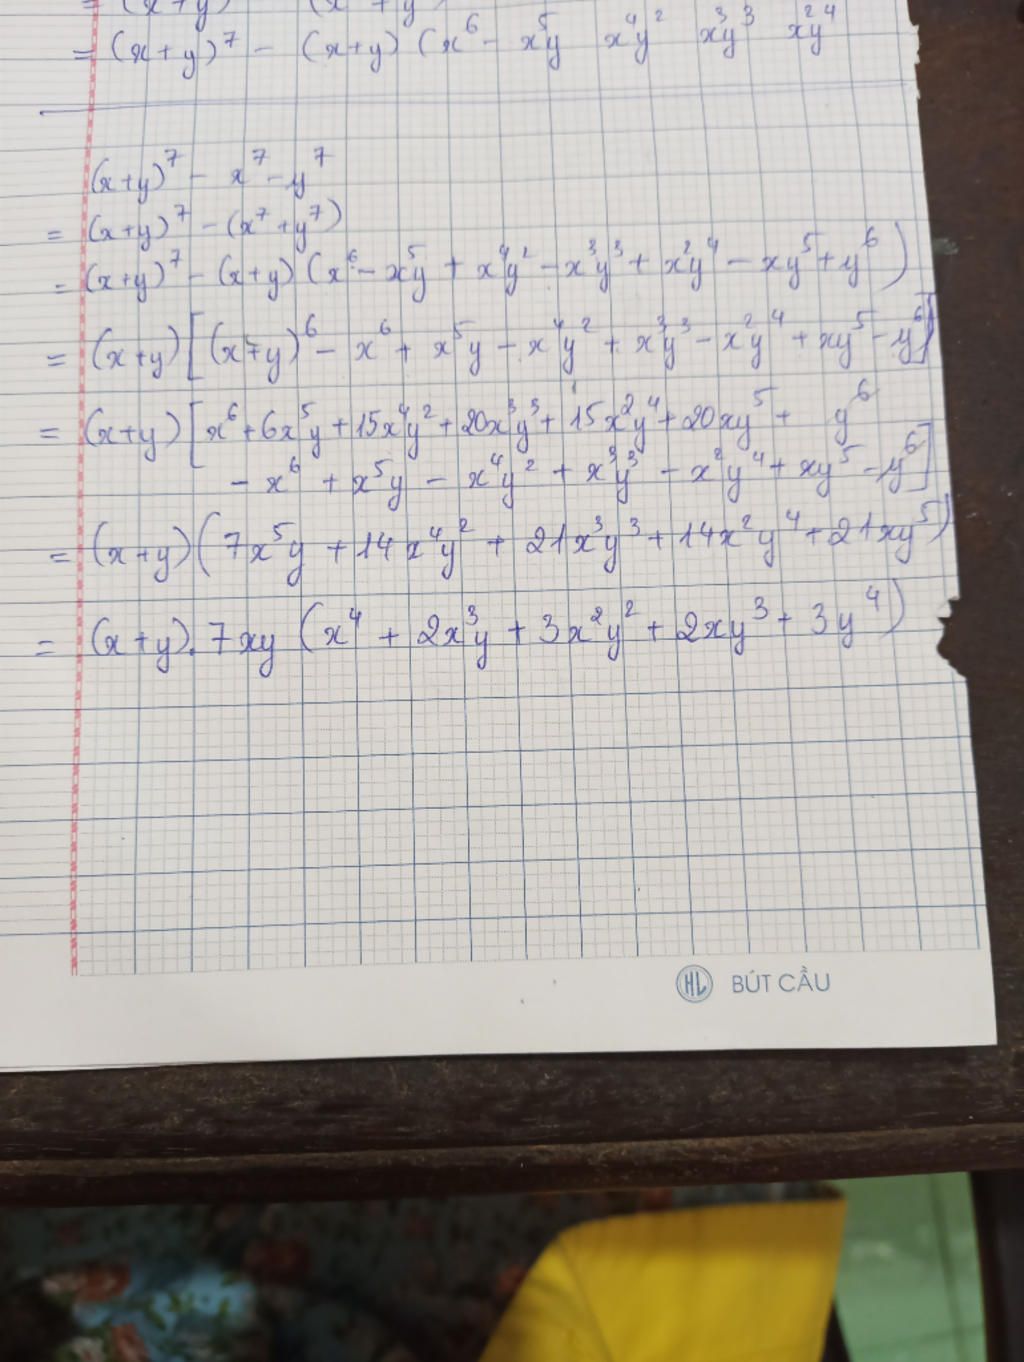 = (x+y)⁷ − (x+y)(x⁶ − x⁵y x⁴y² x³y³ x²y⁴
(x+y)⁷ − x⁷ − y⁷
= (x+y)⁷ − (x⁷ + y⁷)
= (x+y)⁷ − (x+y)(x⁶ − x⁵y + x⁴y² − x³y³ + x²y⁴ − xy⁵ + y⁶)
= (x+y)[(x+y)⁶ − x⁶ + x⁵y − x⁴y² + x³y³ − x²y⁴ + xy⁵ − y⁶]
= (x+y)[x⁶ + 6x⁵y + 15x⁴y² + 20x³y³ + 15x²y⁴ + 20xy⁵ + y⁶
− x⁶ + x⁵y − x⁴y² + x³y³ − x²y⁴ + xy⁵ − y⁶]
= (x+y)(7x⁵y + 14x⁴y² + 21x³y³ + 14x²y⁴ + 21xy⁵)
= (x+y).7xy (x⁴ + 2x³y + 3x²y² + 2xy³ + 3y⁴)
HL BÚT CẦU